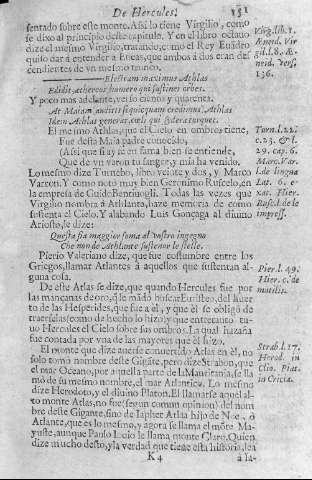 De Hercules. 151
sentado sobre este monte. Así lo tiene Virgilio, como
se dixo al principio deste capitulo. Y en el libro octauo
dize el mesmo Virgilio, tratando, como el Rey Euãdro
quiso dar à entender à Eneas, que ambos à dos eran des
cendientes de vn mesmo tronco.
Electram maximus Athlas
Edidit, æthereos humero qui sustinet orbes.
Y poco mas adelante, verso ciento y quarenta.
At Maiam, auditis si quicquam credimus, Athlas
Idem Athlas generat, cœli qui sydera torquet.
El mesmo Athlas, que el Cielo en ombros tiene,
Fue desta Maia padre conocido,
(Assi que si ay fè en fama bien se entiende,
Que de vn varon tu sangre, y mia ha venido.
Lo mesmo dize Turnebo, libro veynte y dos, y Marco
Varron. Y como noto muy bien Geronimo Ruscelo, en
la empresa de Guido Bentiuogli. Todas las vezes que
Virgilio nombra à Athlante, haze memoria de como
sustenta el Cielo. Y alabando Luis Gonçaga al diuino
Ariosto, le dize:
Questa fia maggior soma al vostro ingegno
Che non de Athlante sustener le stelle.
Pierio Valeriano dize, que fue costumbre entre los
Griegos, llamar Atlantes à aquellos que sustentan al-
guna cosa.
De este Atlas se dize, que quando Hercules fue por
las mançanas de oro, q̃ le mãdò buscar Euristeo, del huer
to de las Hesperides, que fue à el, y que èl se obligò de
traerselas, como de hecho lo hizo, y que entretanto tu-
uo Hercules el Cielo sobre sus ombros. La qual hazaña
fue contada por vna de las mayores que èl hizo.
El monte que dize auerse conuertido Atlas en èl, no
solo tomò nombre deste Gigãte, pero dize Strabon, que
el mar Oceano, por aquella parte de la Mauritania, se lla
mò de su mesmo nombre, el mar Atlantico. Lo mesmo
dize Herodoto, y el diuino Platon. El llamarse aquel al-
to monte Atlas, no fue (segun comun opinion) del nom
bre deste Gigante, sino de Iaphet Atlas hijo de Noe, ò
Atlante, que es lo mesmo, y agora se llama el mõte Ma-
yuste, aunque Paulo Iouio le llama monte Claro. Quien
dize mucho desto, y la verdad que tiene esta historia, lea
K 4 à la-
Virg. lib. 1.
Æneid. Vir
gil. l. 8. Æ-
neid. vers.
136.
Torn. l. 22.
c. 23. & l.
29. cap. 6.
Marc. Var.
l. de lingua
Lat. 6. e-
xat. Hier.
Rusc. l. de le
impress.
Pier. l. 49.
Hier. c. de
mutilis.
Strab. l. 17.
Herod. in
Clio. Plat.
in Critia.